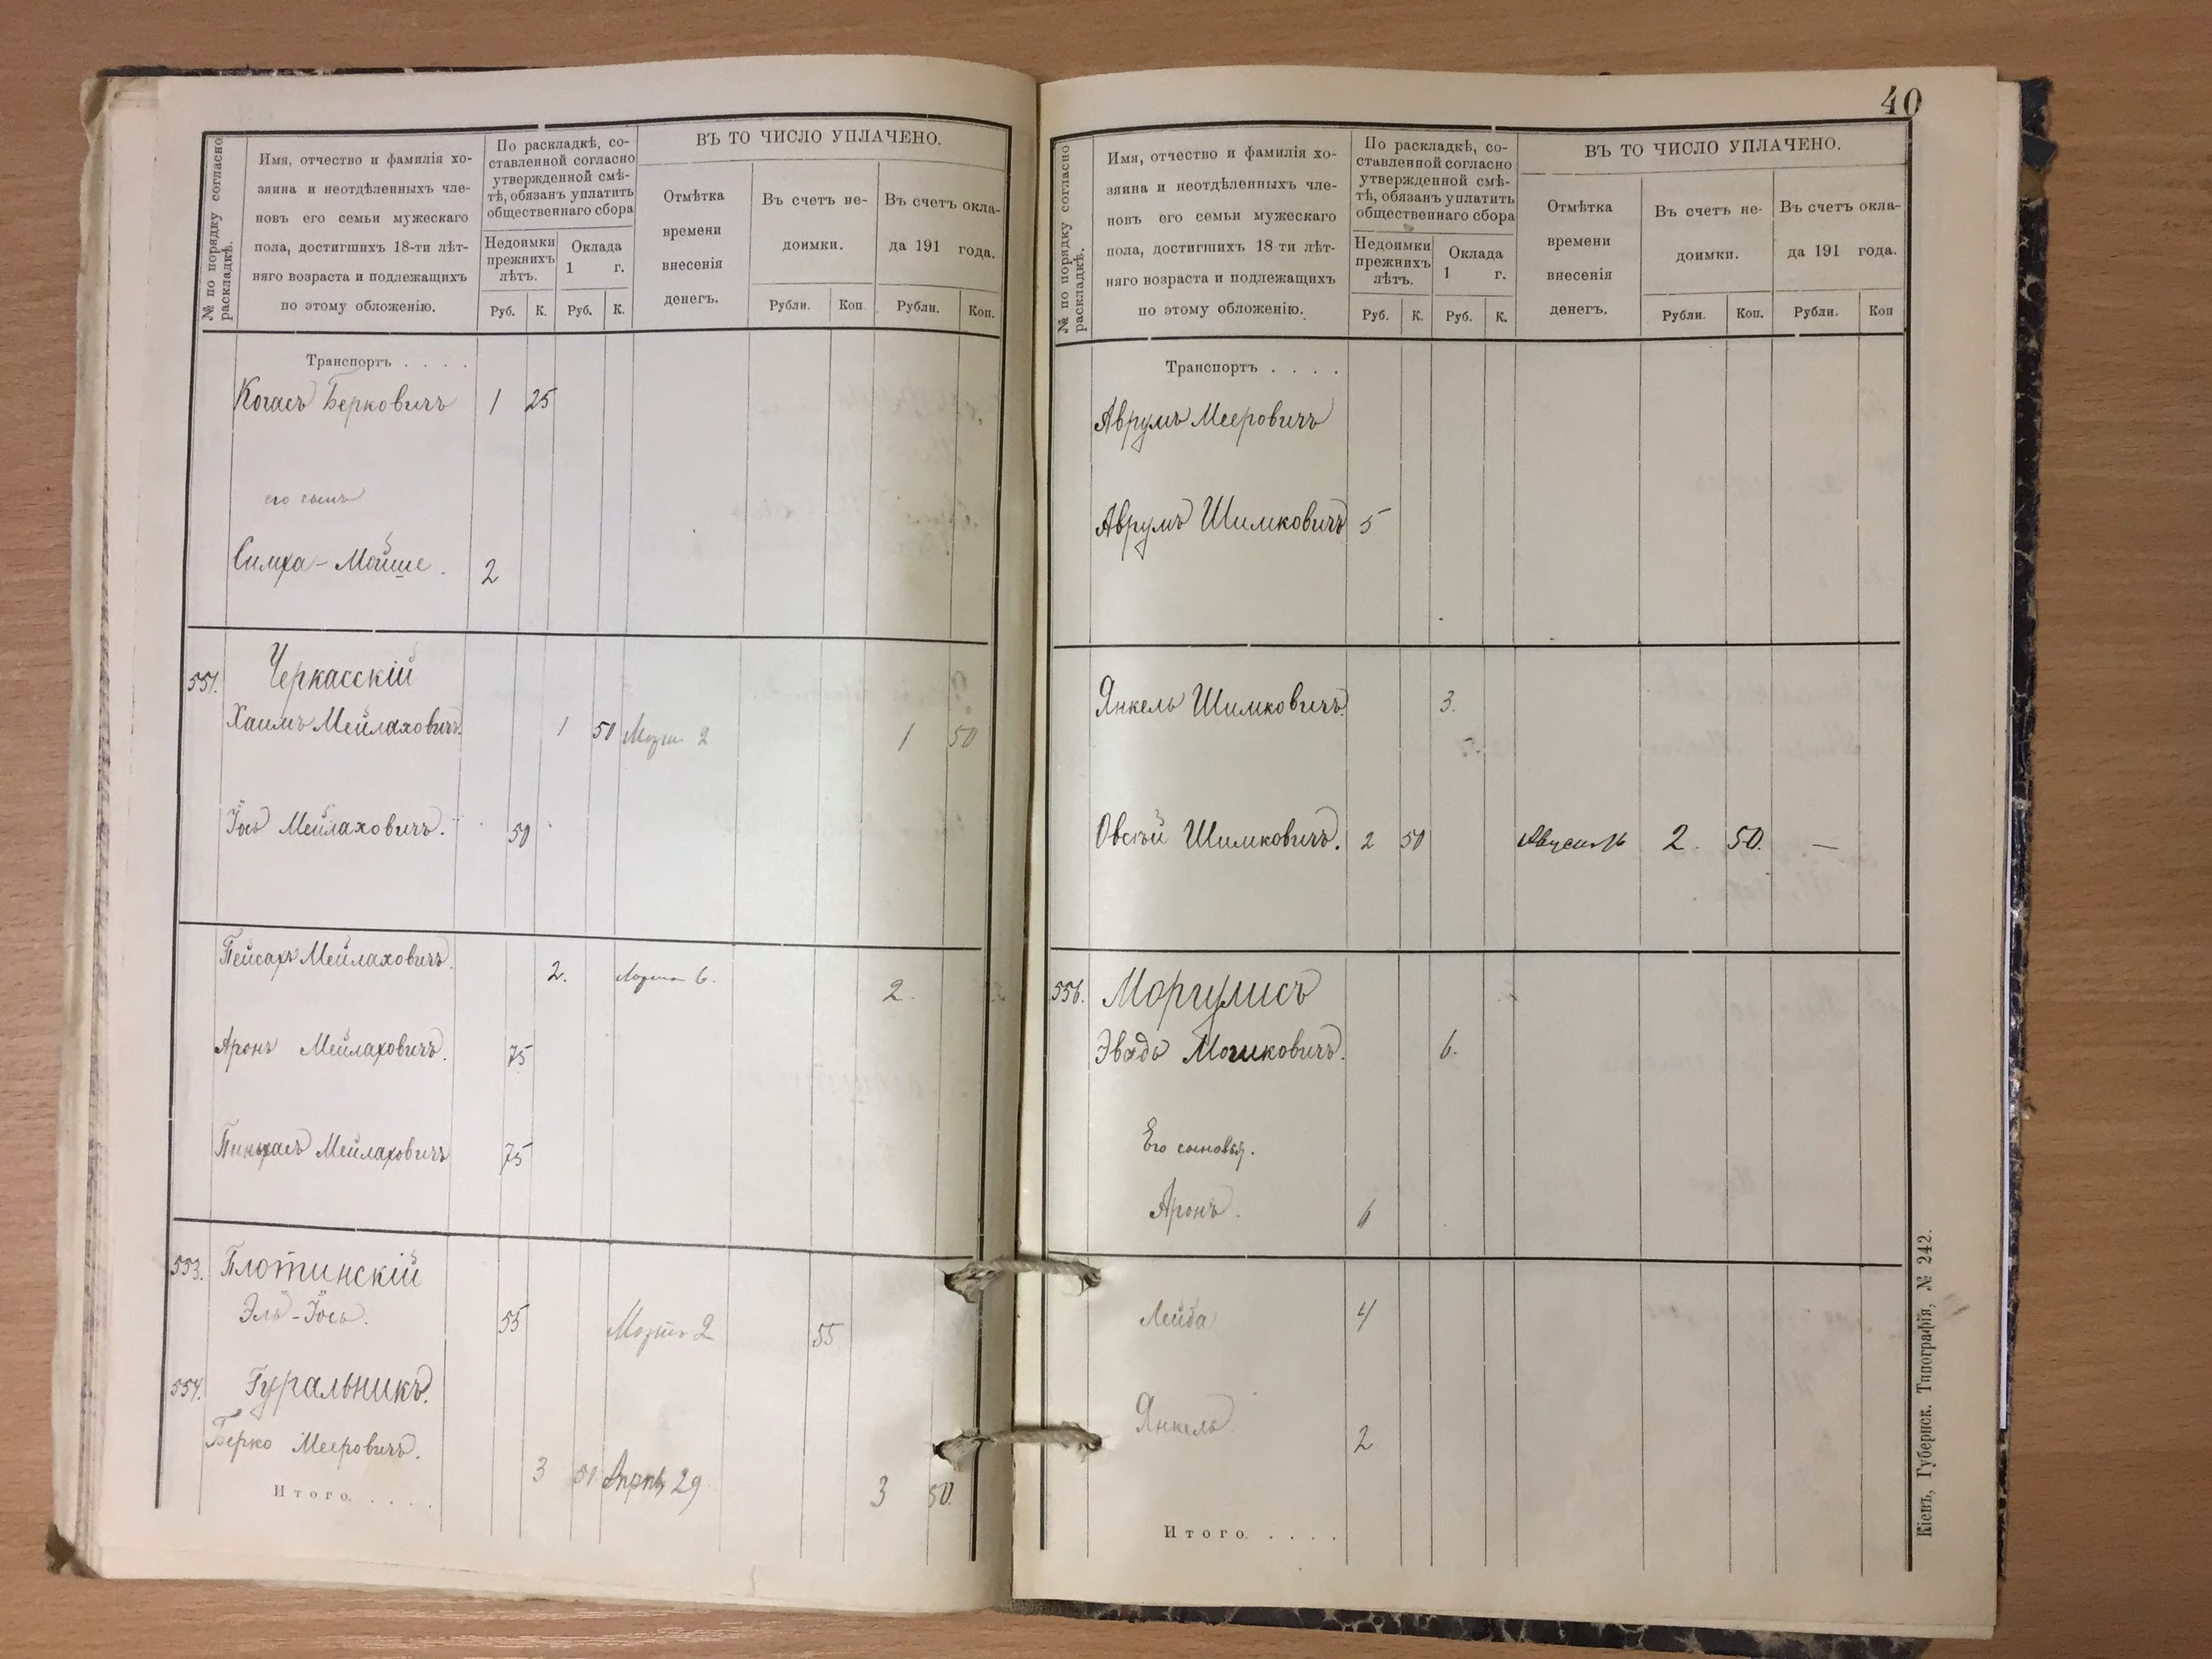 № по порядку согласно
раскладкѣ.
Имя, отчество и фамилія хо-
зяина и неотдѣленныхъ чле-
новъ его семьи мужескаго
пола, достигшихъ 18-ти лѣт-
няго возраста и подлежащихъ
по этому обложенію.
По раскладкѣ, со-
ставленной согласно
утвержденной смѣ-
тѣ, обязанъ уплатить
общественнаго сбора
Недоимки
прежнихъ
лѣтъ.
Оклада
1 г.
Руб. К. Руб. К.
ВЪ ТО ЧИСЛО УПЛАЧЕНО.
Отмѣтка
времени
внесенія
денегъ.
Въ счетъ не-
доимки.
Въ счетъ окла-
да 191 года.
Рубли. Коп Рубли. Коп.
Транспортъ . . . .
Когасъ Берковичъ 1 25
его сынъ
Симха-Мойше. 2
551. Черкасскій
Хаимъ Мейлаховичъ. 1 50 Марта 2 1 50
Іось Мейлаховичъ. 50
Пейсахъ Мейлаховичъ. 2. Марта 6. 2.
Аронъ Мейлаховичъ. 75
Пинхасъ Мейлаховичъ 75
553. Плотинскій
Эль-Іось. 55 Марта 2 55
554. Гуральникъ.
Берко Мееровичъ. 3 50 Апрѣль 29 3 50.
Итого. . . . .
40
№ по порядку согласно
раскладкѣ.
Имя, отчество и фамилія хо-
зяина и неотдѣленныхъ чле-
новъ его семьи мужескаго
пола, достигшихъ 18 ти лѣт-
няго возраста и подлежащихъ
по этому обложенію.
По раскладкѣ, со-
ставленной согласно
утвержденной смѣ-
тѣ, обязанъ уплатить
общественнаго сбора
Недоимки
прежнихъ
лѣтъ.
Оклада
1 г.
Руб. К. Руб. К.
ВЪ ТО ЧИСЛО УПЛАЧЕНО.
Отмѣтка
времени
внесенія
денегъ.
Въ счетъ не-
доимки.
Въ счетъ окла-
да 191 года.
Рубли. Коп. Рубли. Коп
Транспортъ . . . .
Аврумъ Мееровичъ
Аврумъ Шимковичъ 5
Янкель Шимковичъ. 3.
Овсѣй Шимковичъ. 2 50 2. 50. —
556. Моргулисъ
Эвадь Мошковичъ. 6.
Его сыновья.
Аронъ. 6
Лейба 4
Янкель 2
Итого . . . .
Кіевъ, Губернск. Типографія, № 242.